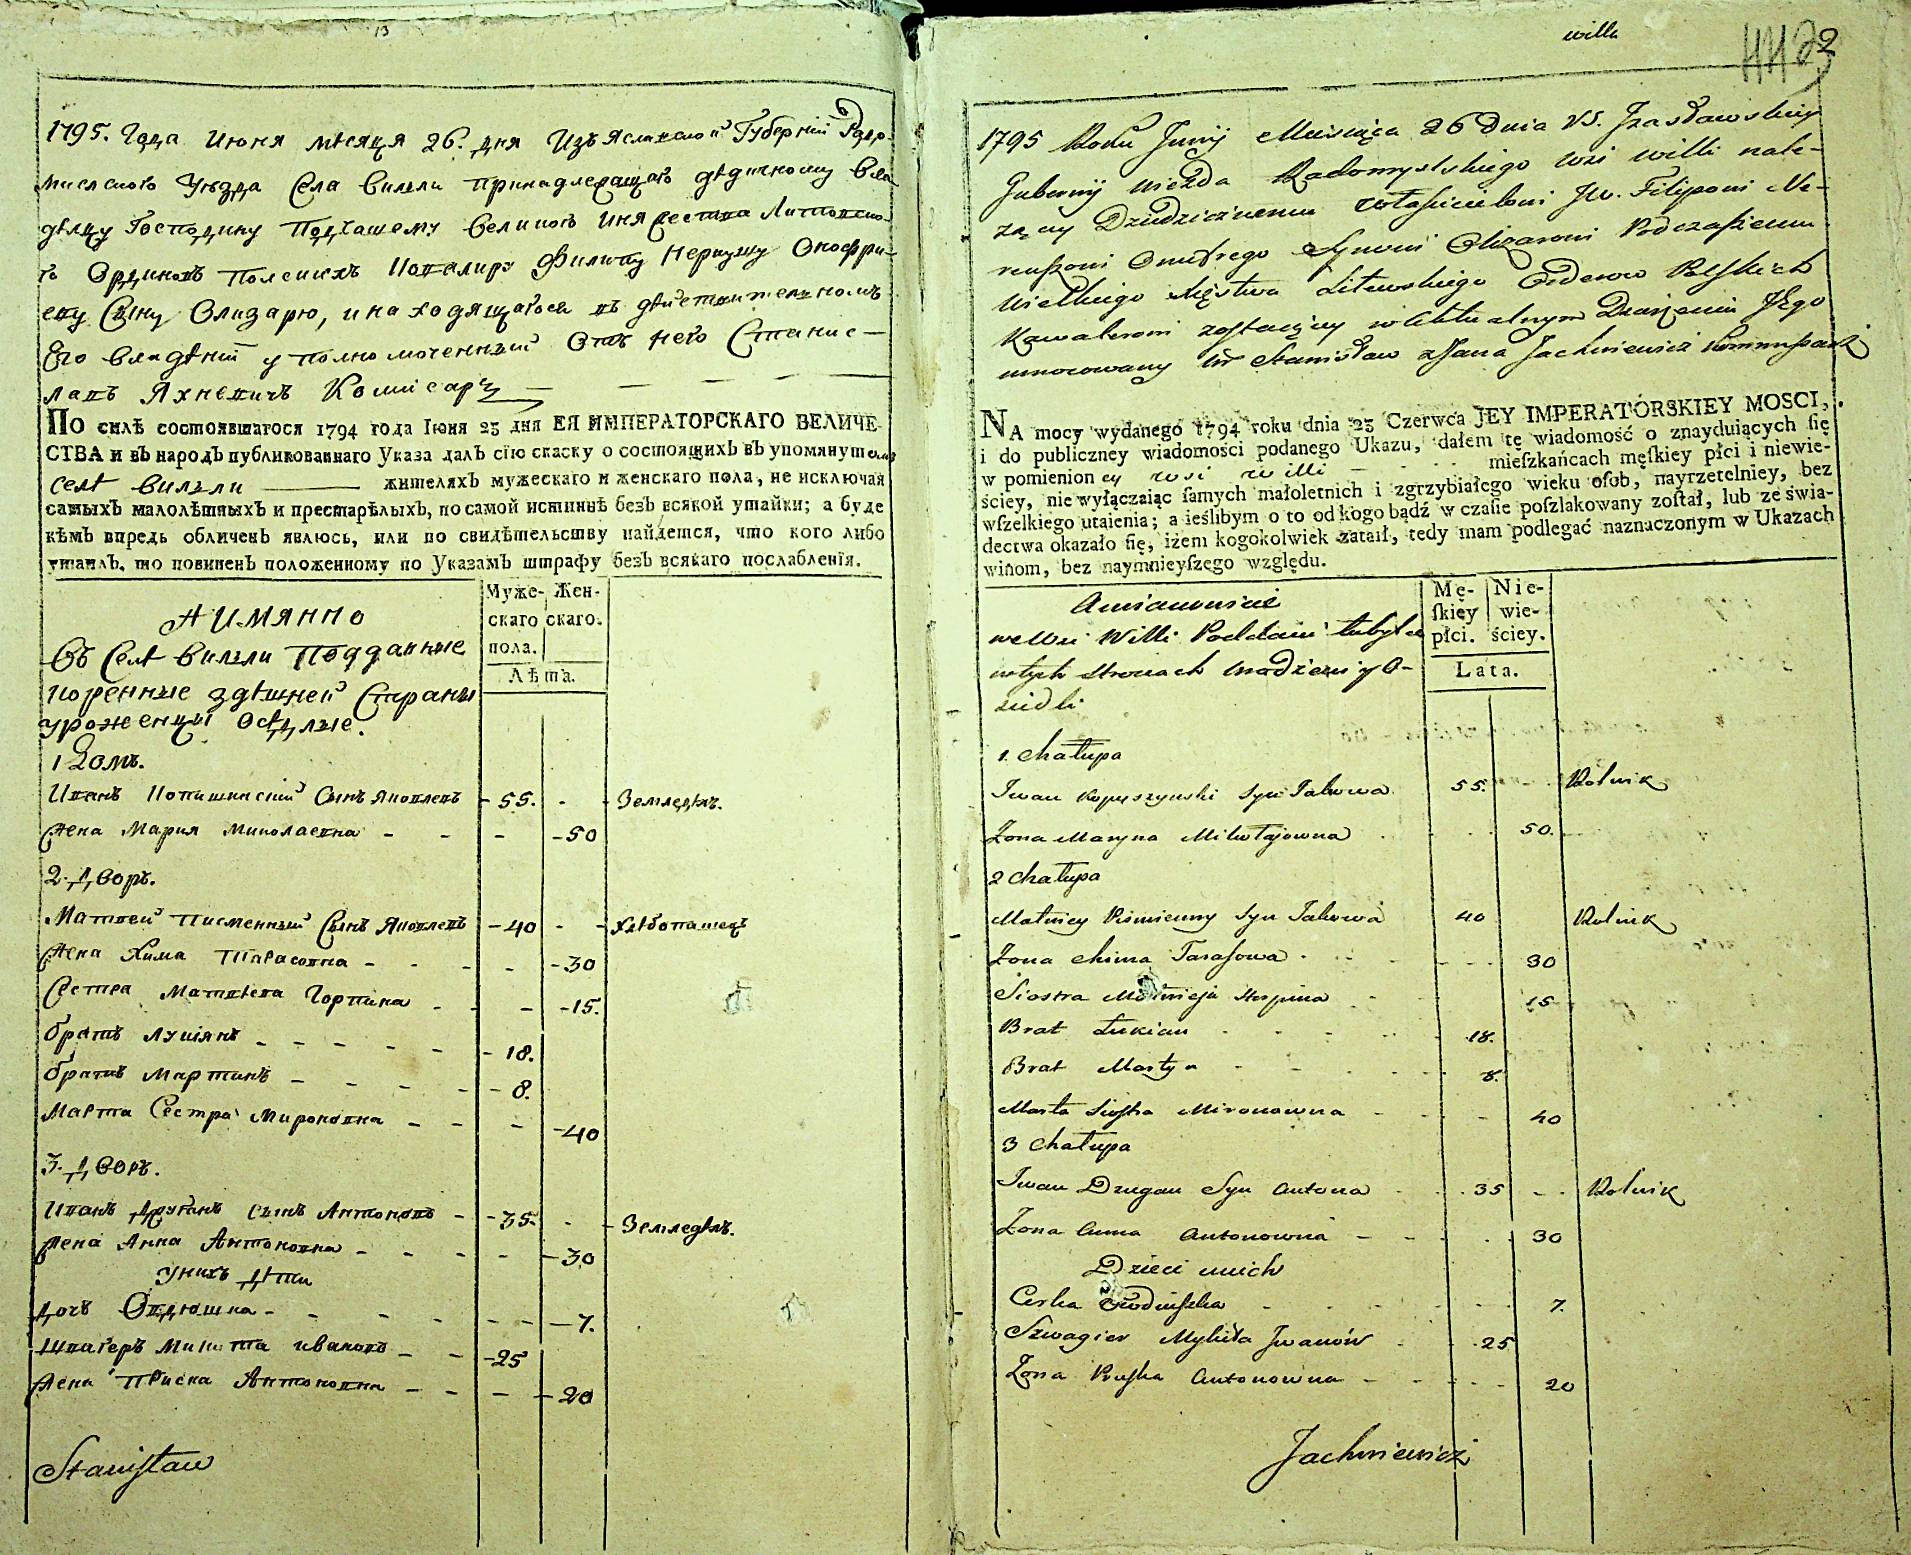 13
1795. Года Июня мѣсяца 26. дня Изъяславской Губерніи Радо-
мислского Уѣзда Села Вилли принадлежащаго дѣдичному вла
дѣлцу Господину Подчашему Великого Княжества Литовско-
го Ординовъ Полскихъ Кавалиру Филипу Нериушу Онофри-
еву Сыну Олизарю, и находящагося въ дѣиствителномъ
Его владѣніи уполномоченный Отъ него Станис-
лавъ Яхневичъ Комисаръ
ПО силѣ состоявшагося 1794 года Іюня 23 дня ЕЯ ИМПЕРАТОРСКАГО ВЕЛИЧЕ-
СТВА и въ народъ публикованнаго Указа далъ сію скаску о состоящихъ въ упомянутомъ
селѣ Вилли жителяхъ мужескаго и женскаго пола, не исключая
самыхъ малолѣтныхъ и престарѣлыхъ, по самой истиннѣ безъ всякой утайки; а буде
кѣмъ впредь обличенъ явлюсь, или по свидѣтельству найдется, что кого либо
утаилъ, то повиненъ положенному по Указамъ штрафу безъ всякаго послабленія.
А ИМЯННО
Муже-скаго пола. Жен-скаго.
Лѣта.
Въ Селѣ Вилли Подданные
коренные здѣшней Страны
уроженцы осѣдлые.
1 Домъ.
Иванъ Копишинскій Сынъ Яковлевъ - 55. - Земледѣл.
Жена Мария Миколаевна - - - - 50
2. Дворъ.
Матвей Писменный Сынъ Яковлевъ - 40 - - Хлѣбопашецъ
Жена Хима Тарасовна - - - - 30
Сестра Матвѣева Горпина - - - - 15.
братъ Лукіянъ - - - - - 18.
братъ Мартинъ - - - - 8.
Марта Сестра Мироновна - - - 40
3. Дворъ.
Иванъ Друганъ сынъ Антоновъ - - 35. - - Земледѣл.
Жена Анна Антоновна - - - - 30
У нихъ Дѣти
Дочъ Овдюшка - - - - - 7.
Швагеръ Микита Ивановъ - - - 25
Жена Приска Антоновна - - - - 20
Stanisław
willa
1795 Roku Junij Miesiąca 26 Dnia VS. Jzasławskiey
Gubernij Uiezda Radomyslskiego wsi Willi nale-
żącey Dziedzicznemu właścicielowi JW. Filipowi Ne-
reuszowi Onufrego Synowi Olizarowi Podczaszemu
Wielkiego Xięstwa Litewskiego Orderow Polskich
Kawalerowi zostaiącey w aktualnym Dzierżeniu Jego
umocowany Stanisław z Jana Jachniewicz Kommissarz
NA mocy wydanego 1794 roku dnia 23 Czerwca JEY IMPERATORSKIEY MOSCI,
i do publiczney wiadomości podanego Ukazu, dałem tę wiadomość o znayduiących ſię
w pomienion ey wsi Willi mieſzkańcach męſkiey płci i niewie-
ściey, nie wyłączaiąc ſamych małoletnich i zgrzybiałego wieku oſob, nayrzetelniey, bez
wſzelkiego utaienia; a ieślibym o to od kogo bądź w czaſie poſzlakowany zoſtał, lub ze świa-
dectwa okazało ſię, iżem kogokolwiek zataił, tedy mam podlegać naznaczonym w Ukazach
winom, bez naymnieyſzego względu.
Amianowicie
Mę-ſkiey płci. Nie-wie-ściey.
Lata.
we Wsi Willi Poddani tubylcy
w tych stronach urodzeni y O-
siedli
1 Chałupa
Jwan Kopiszynski Syn Jakowa 55. - - Rolnik
Zona Maryna Mikołajowna 50.
2 Chałupa
Matwiey Pismienny Syn Jakowa 40 Rolnik
Zona Chima Tarasowa 30
Siostra Matwieja Horpina 15
Brat Łukian 18.
Brat Martyn 8.
Marta Siostra Mironowna 40
3 Chałupa
Jwan Drugan Syn Antona 35 - - Rolnik
Zona Anna Antonowna 30
Dzieci u nich
Corka Owdiuszka 7.
Szwagier Mykita Jwanów 25
Zona Pryska Antonowna 20
Jachniewicz